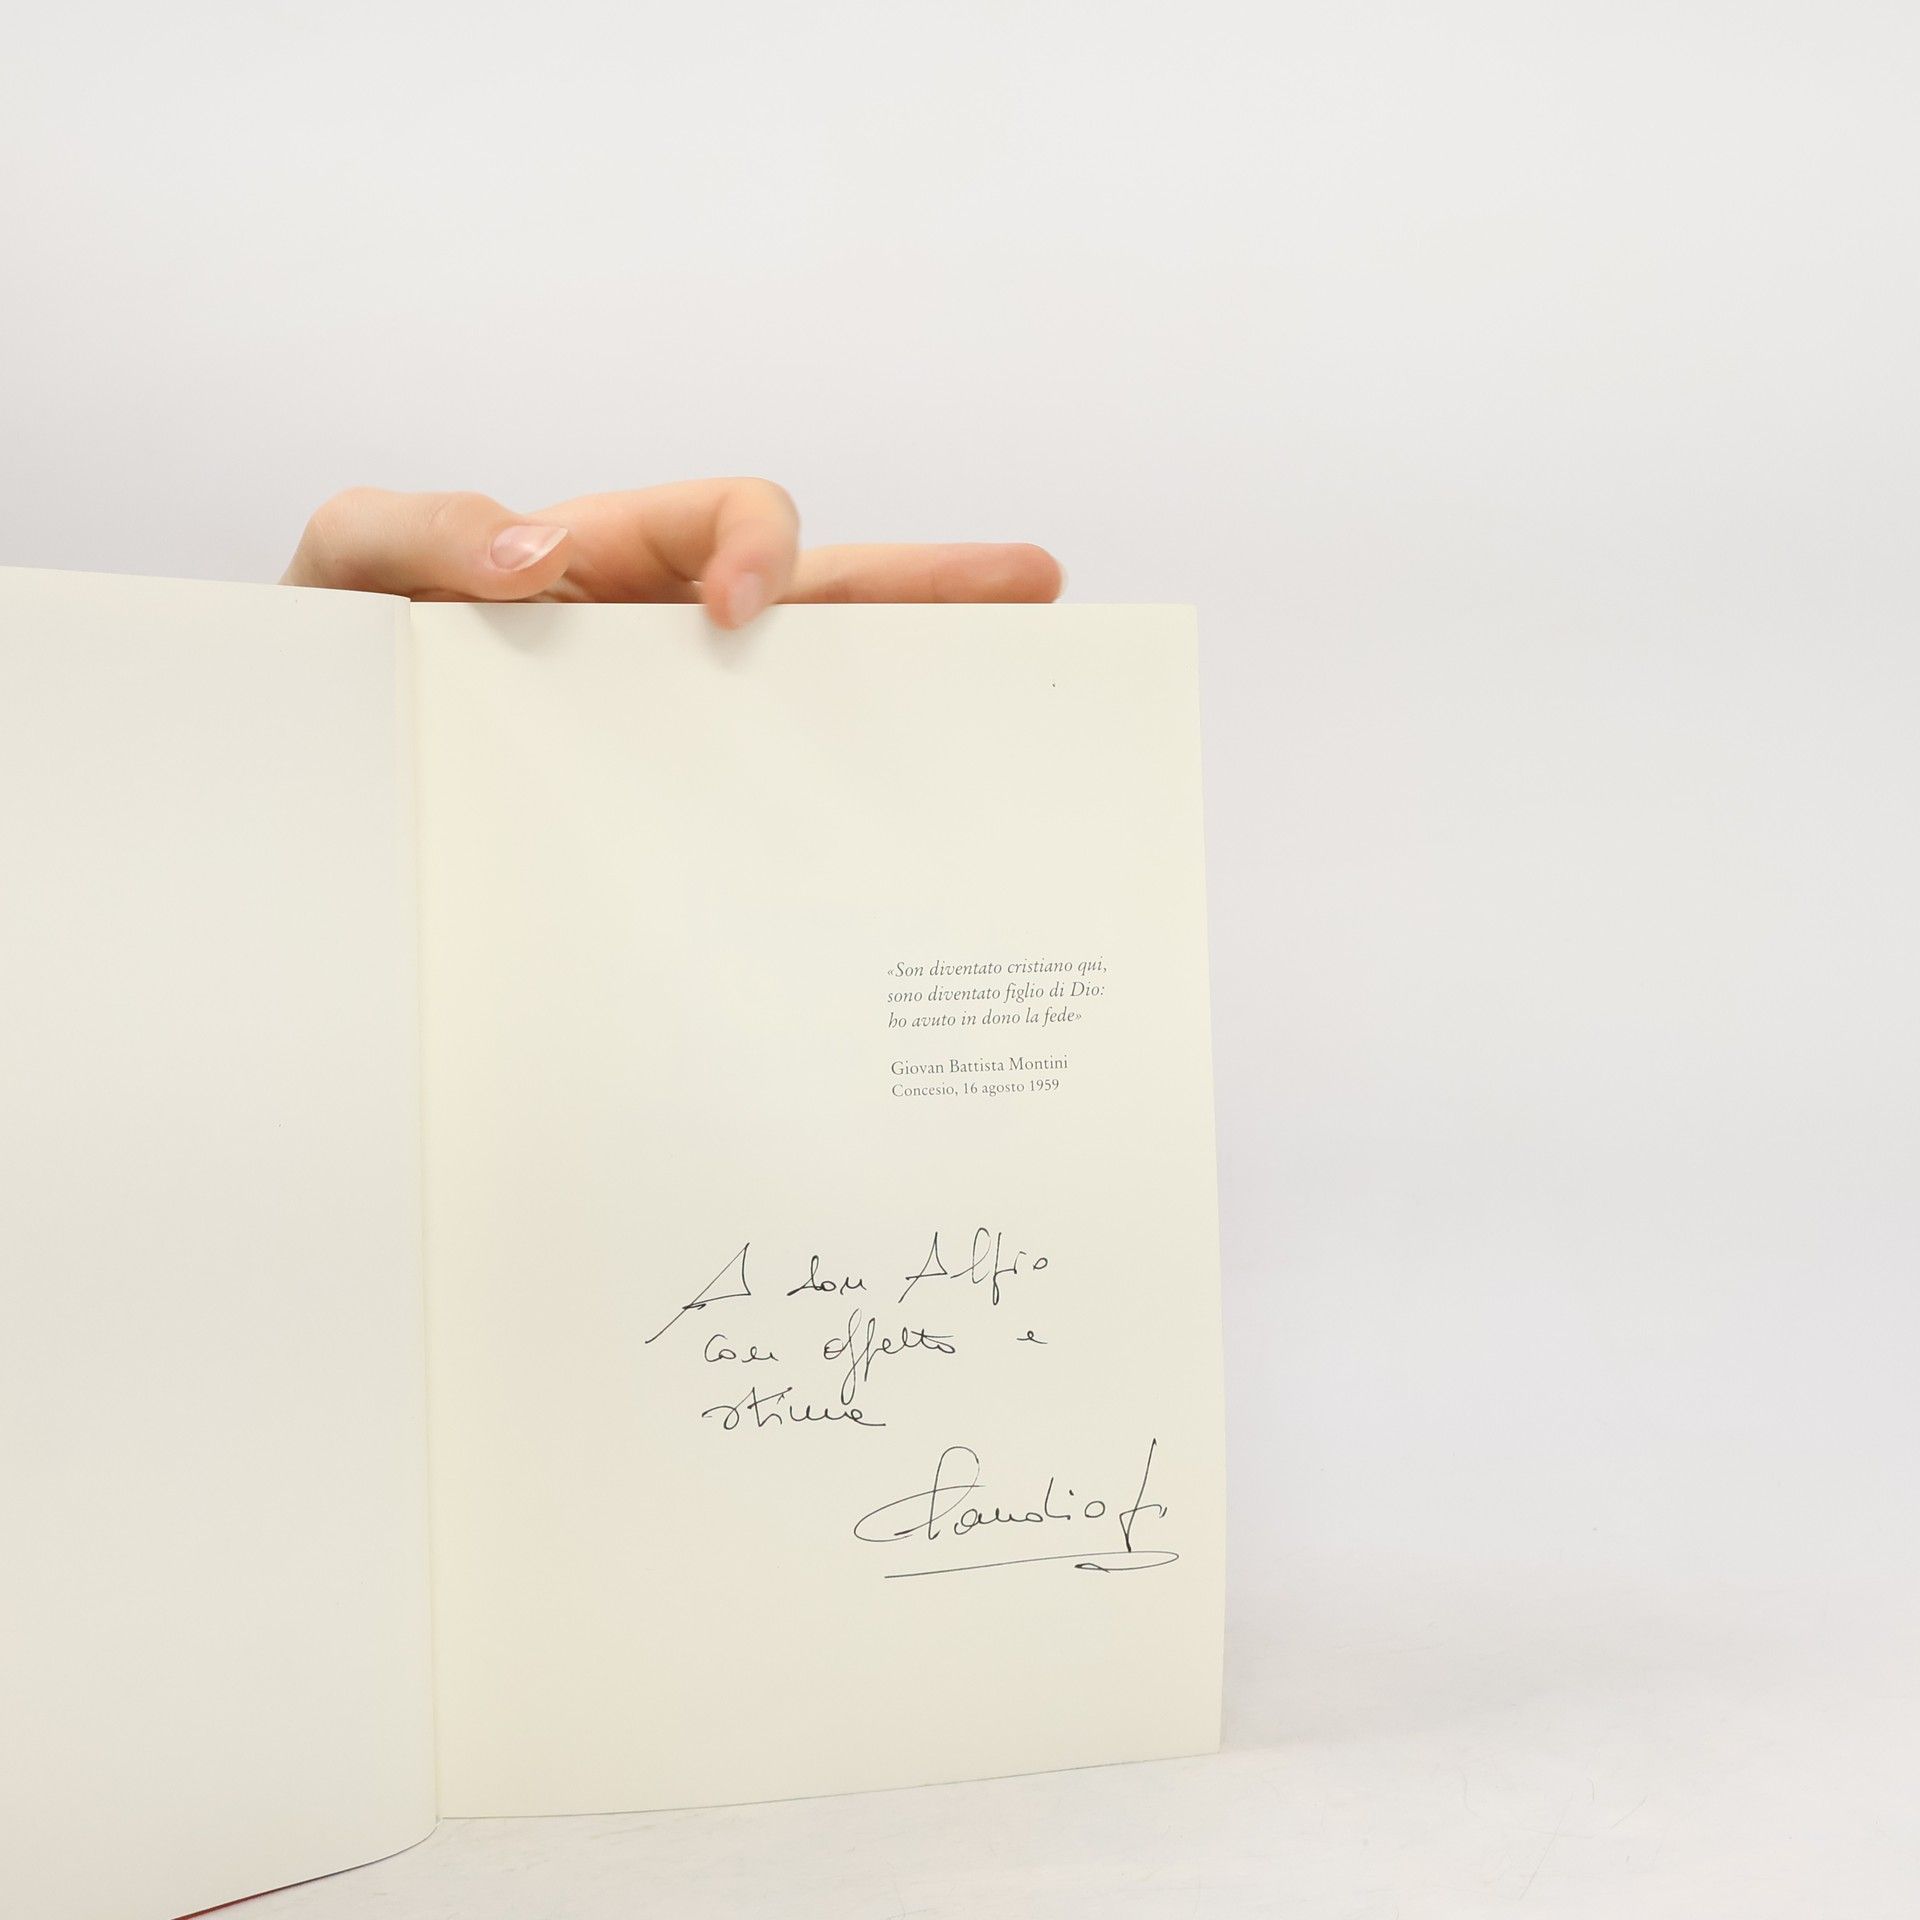 «Son diventato cristiano qui,
sono diventato figlio di Dio:
ho avuto in dono la fede»
Giovan Battista Montini
Concesio, 16 agosto 1959
A don Alfio
con affetto e
stima
Claudio